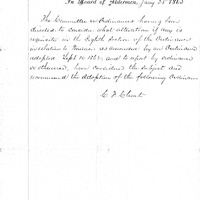 In Board of Aldermen, Jany 25 1863
The Committee on Ordinances having been
directed to consider what alteration if any is
requisite in the Eighth Section of the Ordinance
in relation to as amended by an Ordinance
adopted Sept. 10 and to report by ordinance
or otherwise, have considered the subject and
recommend the adoption of the following Ordinance
C. F.